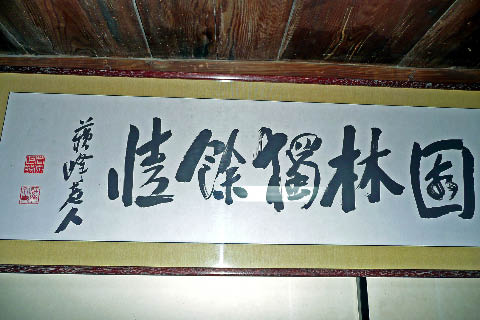 園林獨餘情
蘇峰老人